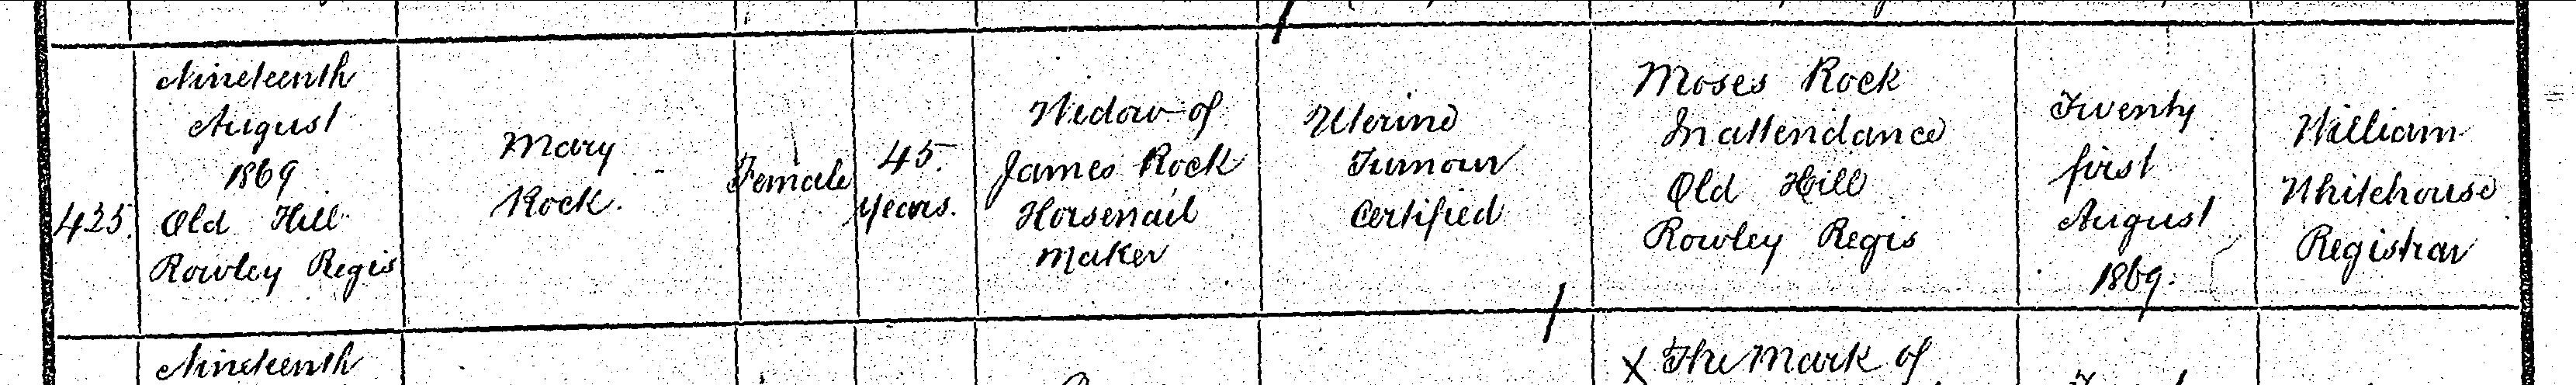 425.
Nineteenth
August
1869
Old Hill
Rowley Regis
Mary
Rock.
Female
45.
Years.
Widow of
James Rock
Horsenail
Maker
Uterine
Tumour
Certified
Moses Rock
In attendance
Old Hill
Rowley Regis
Twenty
first
August
1869.
William
Whitehouse
Registrar
Nineteenth
X The Mark of